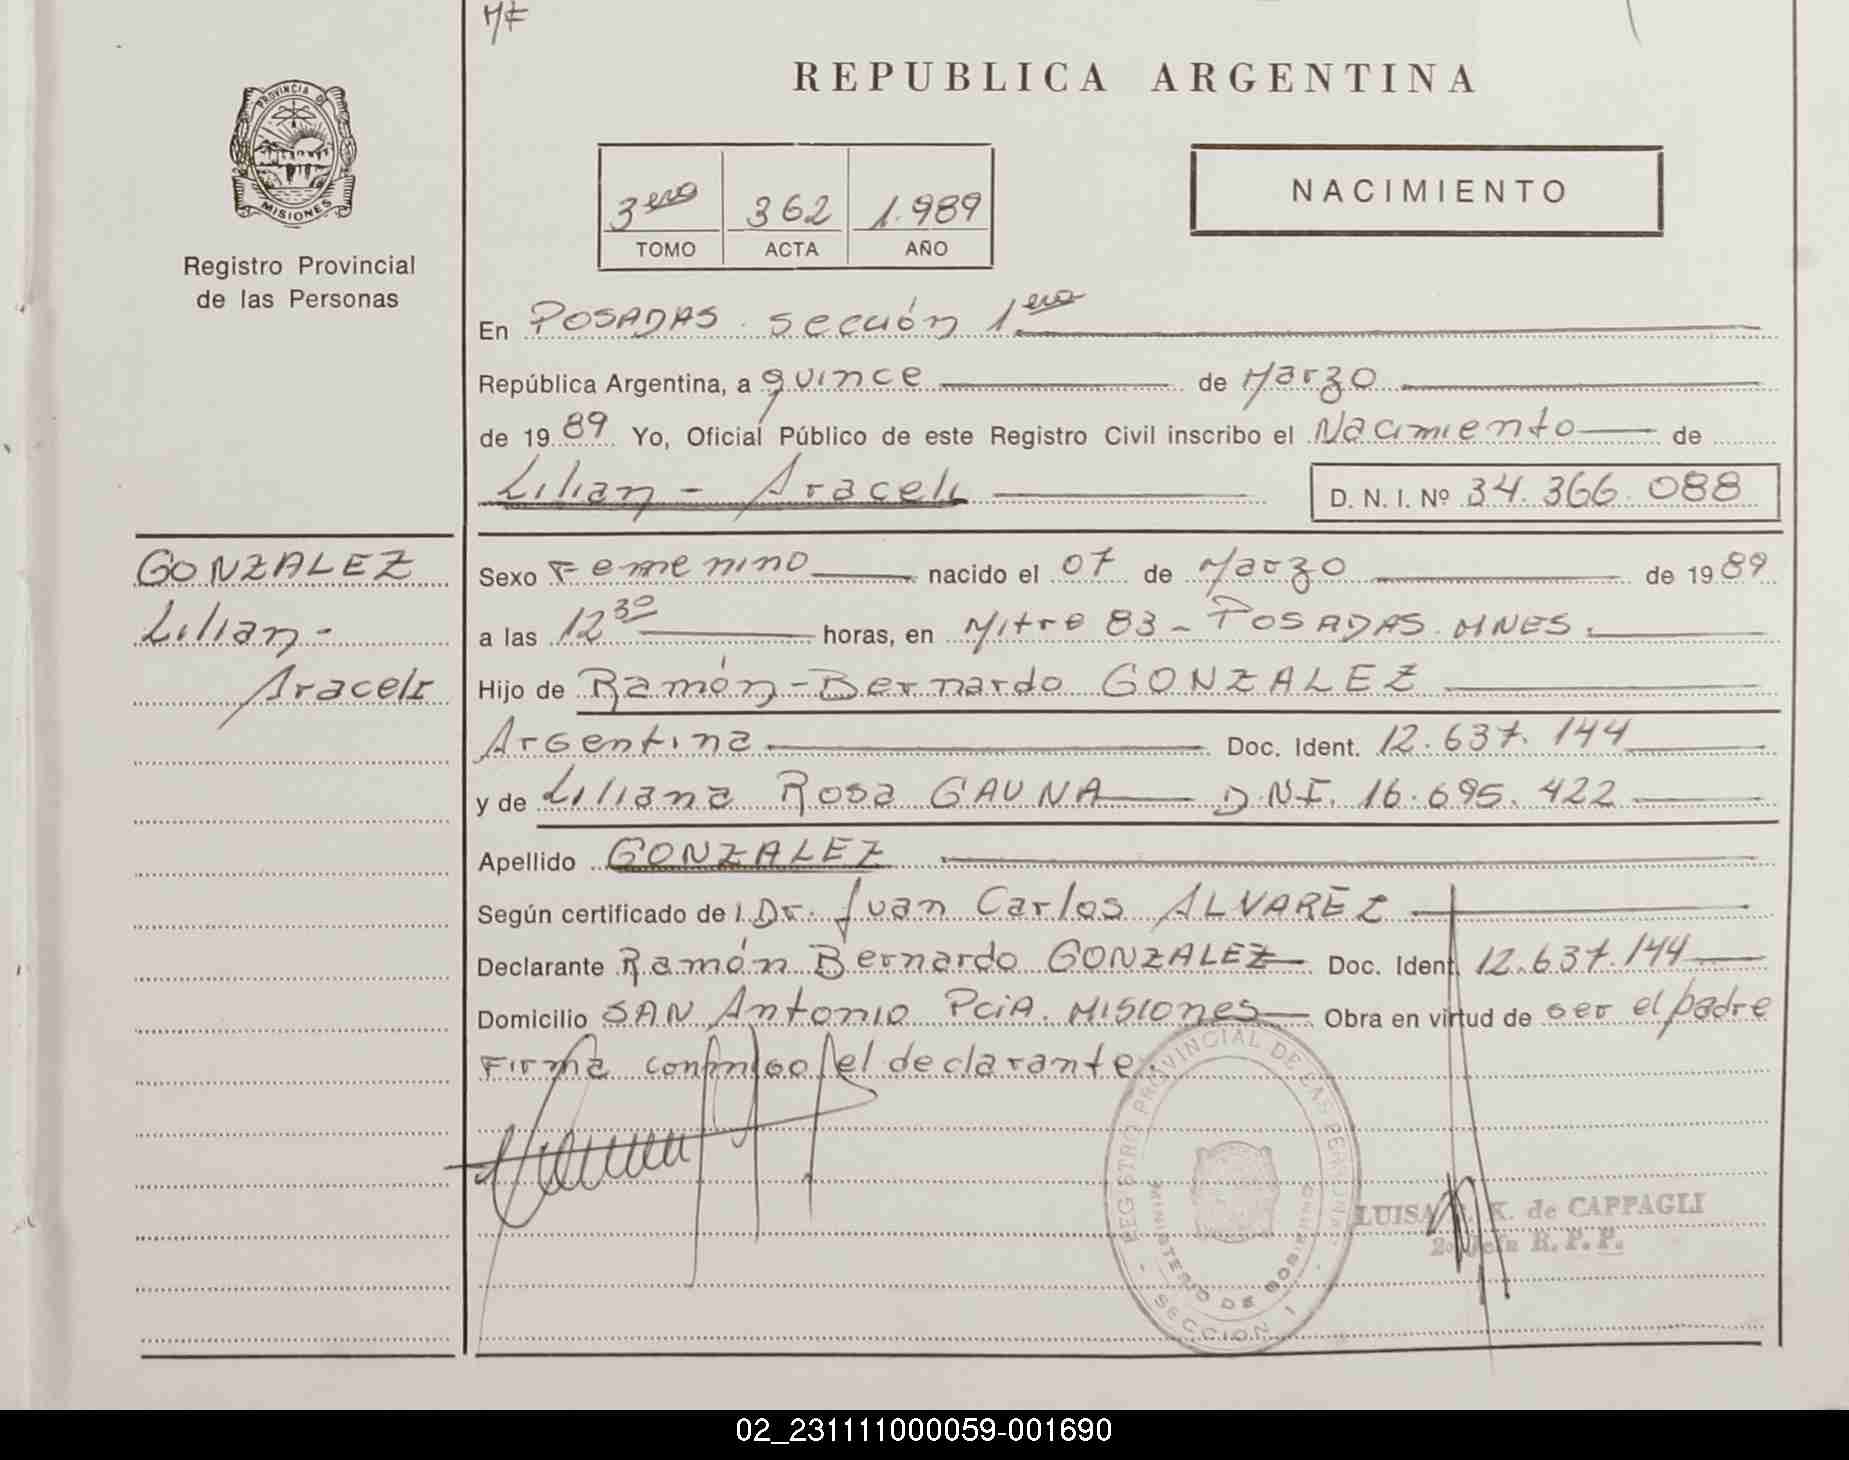 MF
REPUBLICA ARGENTINA
PROVINCIA DE
MISIONES
Registro Provincial
de las Personas
3era 362 1.989
TOMO ACTA AÑO
NACIMIENTO
En POSADAS. sección 1era
República Argentina, a quince de Marzo
de 1989 Yo, Oficial Público de este Registro Civil inscribo el Nacimiento de
Lilian - Araceli D. N. I. Nº 34.366.088
GONZALEZ
Lilian -
Araceli
Sexo Femenino nacido el 07 de Marzo de 1989
a las 12 30 horas, en Mitre 83 - POSADAS. MNES.
Hijo de Ramón - Bernardo GONZALEZ
Argentina Doc. Ident. 12.637.144
y de Liliana Rosa GAUNA D.N.I. 16.695.422
Apellido GONZALEZ
Según certificado de l. Dr. Juan Carlos ALVAREZ
Declarante Ramón Bernardo GONZALEZ Doc. Ident. 12.637.144
Domicilio SAN Antonio PciA. MISIONES Obra en virtud de ser el padre
Firma conmigo el declarante.
REGISTRO PROVINCIAL DE LAS PERSONAS
MINISTERIO DE GOBIERNO
SECCION 1
LUISA K. de CAPPAGLI
2o Jefe R. P. P.
02_231111000059-001690